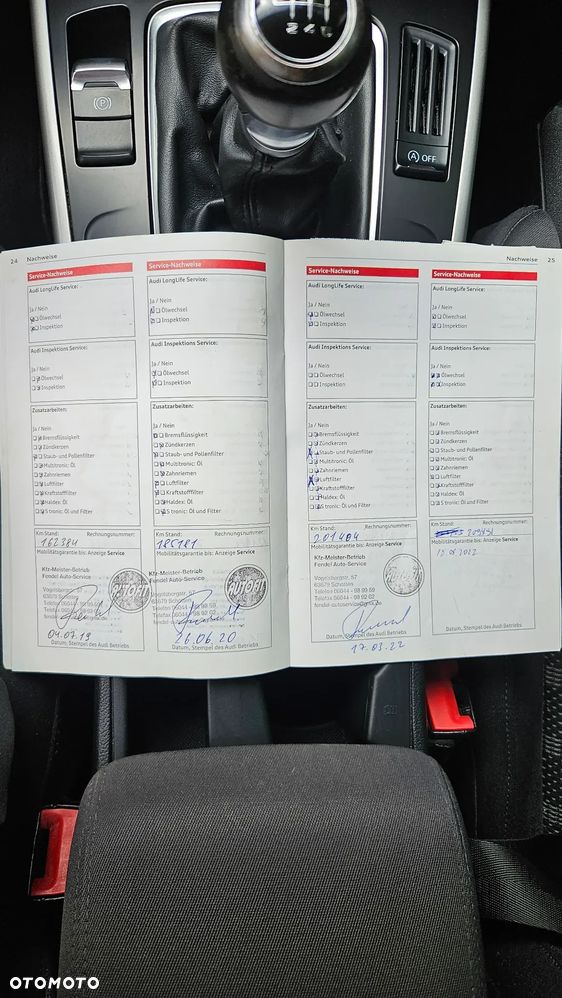 P
A OFF
24 Nachweise
Service-Nachweise
Audi LongLife Service:
Ja / Nein
Ölwechsel
Inspektion
Audi Inspektions Service:
Ja / Nein
Ölwechsel
Inspektion
Zusatzarbeiten:
Bremsflüssigkeit
Zündkerzen
Staub- und Pollenfilter
Multitronic: Öl
Zahnriemen
Luftfilter
Kraftstofffilter
Haldex: Öl
S tronic: Öl und Filter
Km Stand: Rechnungsnummer:
162384
Mobilitätsgarantie bis: Anzeige Service
Kfz-Meister-Betrieb
Fendel Auto-Service
Vogelsbergstr. 57
63679 Schotten
Telefon 06044 - 98 99 59
Telefax 06044 - 98 92 02
04.07.19
Datum, Stempel des Audi Betriebs
Service-Nachweise
Audi LongLife Service:
Ja / Nein
Ölwechsel
Inspektion
Audi Inspektions Service:
Ja / Nein
Ölwechsel
Inspektion
Zusatzarbeiten:
Bremsflüssigkeit
Zündkerzen
Staub- und Pollenfilter
Multitronic: Öl
Zahnriemen
Luftfilter
Kraftstofffilter
Haldex: Öl
S tronic: Öl und Filter
Km Stand: Rechnungsnummer:
Mobilitätsgarantie bis: Anzeige Service
Kfz-Meister-Betrieb
Fendel Auto-Service
26.06.20
Datum, Stempel des Audi Betriebs
Nachweise 25
Service-Nachweise
Audi LongLife Service:
Ja / Nein
Ölwechsel
Inspektion
Audi Inspektions Service:
Ja / Nein
Ölwechsel
Inspektion
Zusatzarbeiten:
Bremsflüssigkeit
Zündkerzen
Staub- und Pollenfilter
Multitronic: Öl
Zahnriemen
Luftfilter
Kraftstofffilter
Haldex: Öl
S tronic: Öl und Filter
Km Stand: Rechnungsnummer:
201404
Mobilitätsgarantie bis: Anzeige Service
Kfz-Meister-Betrieb
Fendel Auto-Service
Vogelsbergstr. 57
63679 Schotten
Telefon 06044 - 98 99 59
Telefax 06044 - 98 92 02
Datum, Stempel des Audi Betriebs
17.03.22
Service-Nachweise
Audi LongLife Service:
Ja / Nein
Ölwechsel
Inspektion
Audi Inspektions Service:
Ja / Nein
Ölwechsel
Inspektion
Zusatzarbeiten:
Bremsflüssigkeit
Zündkerzen
Staub- und Pollenfilter
Multitronic: Öl
Zahnriemen
Luftfilter
Kraftstofffilter
Haldex: Öl
S tronic: Öl und Filter
Km Stand: Rechnungsnummer:
Mobilitätsgarantie bis: Anzeige Service
Datum, Stempel des Audi Betriebs
OTOMOTO